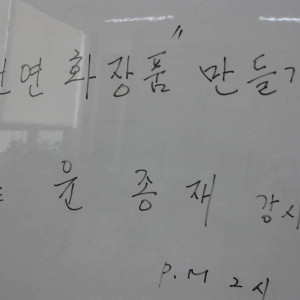 연 화장품" 만들
윤 종 재 강
P.M 2시